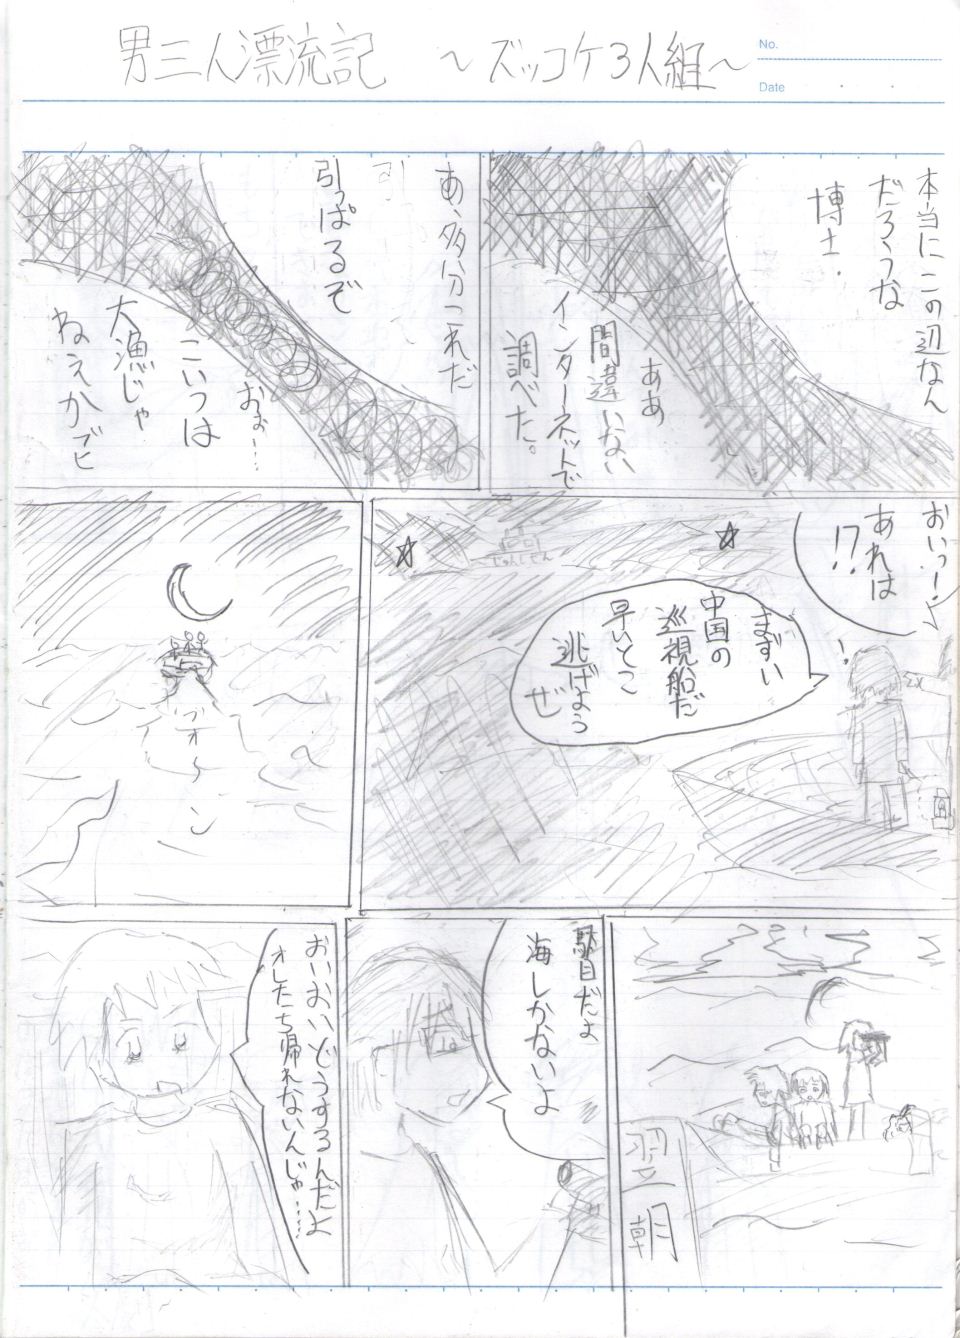 男三人漂流記 ～ズッコケ3人組～
No.
Date
本当にこの辺なん
だろうな
博士.
ああ
間違いない
インターネットで
調べた。
あ、多分これだ
引っぱるぞ
おぉ…
こいつは
大漁じゃ
ねぇか
おいっ!
あれは
!?
!
じゅんしせん
まずい
中国の
巡視船だ
早いとこ
逃げよう
ぜ
ブオーン
翌朝
駄目だよ
海しかないよ
おいおいどうするんだよ
オレたち帰れないんじゃ……